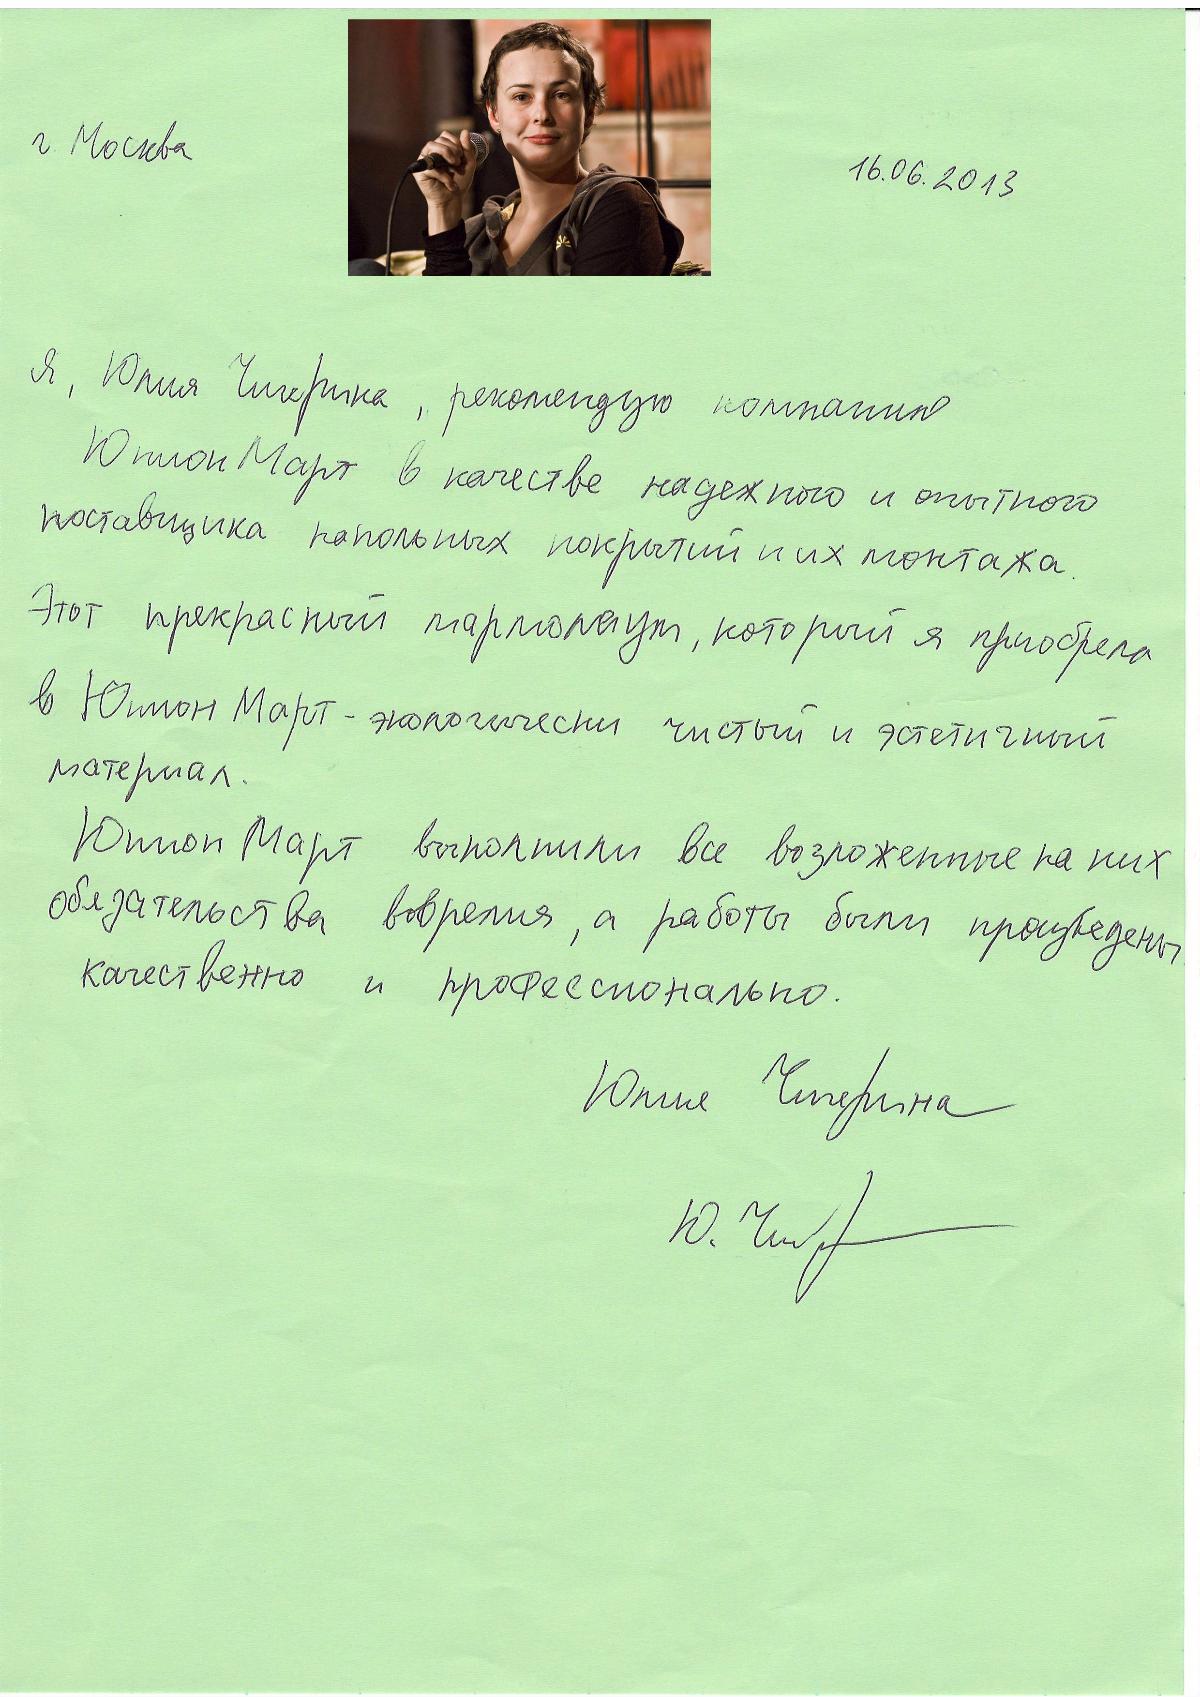 г. Москва
16.06.2013
Я, Юлия Чичерина, рекомендую компанию
Юнион Март в качестве надежного и опытного
поставщика напольных покрытий и их монтажа.
Этот прекрасный мармолеум, который я приобрела
в Юнион Март - экологически чистый и эстетичный
материал.
Юнион Март выполнили все возложенные на них
обязательства вовремя, а работы были произведены
качественно и профессионально.
Юлия Чичерина
Ю. Чичер